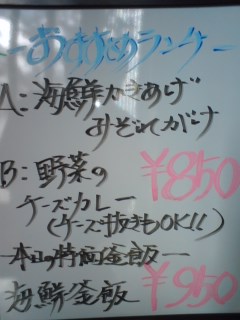 おすすめランチ
A:海鮮かきあげ
みぞれがけ
B:野菜の
¥850
チーズカレー
(チーズ抜きもOK!!)
本日の特Ⓡ釜飯
海鮮釜飯 ¥950